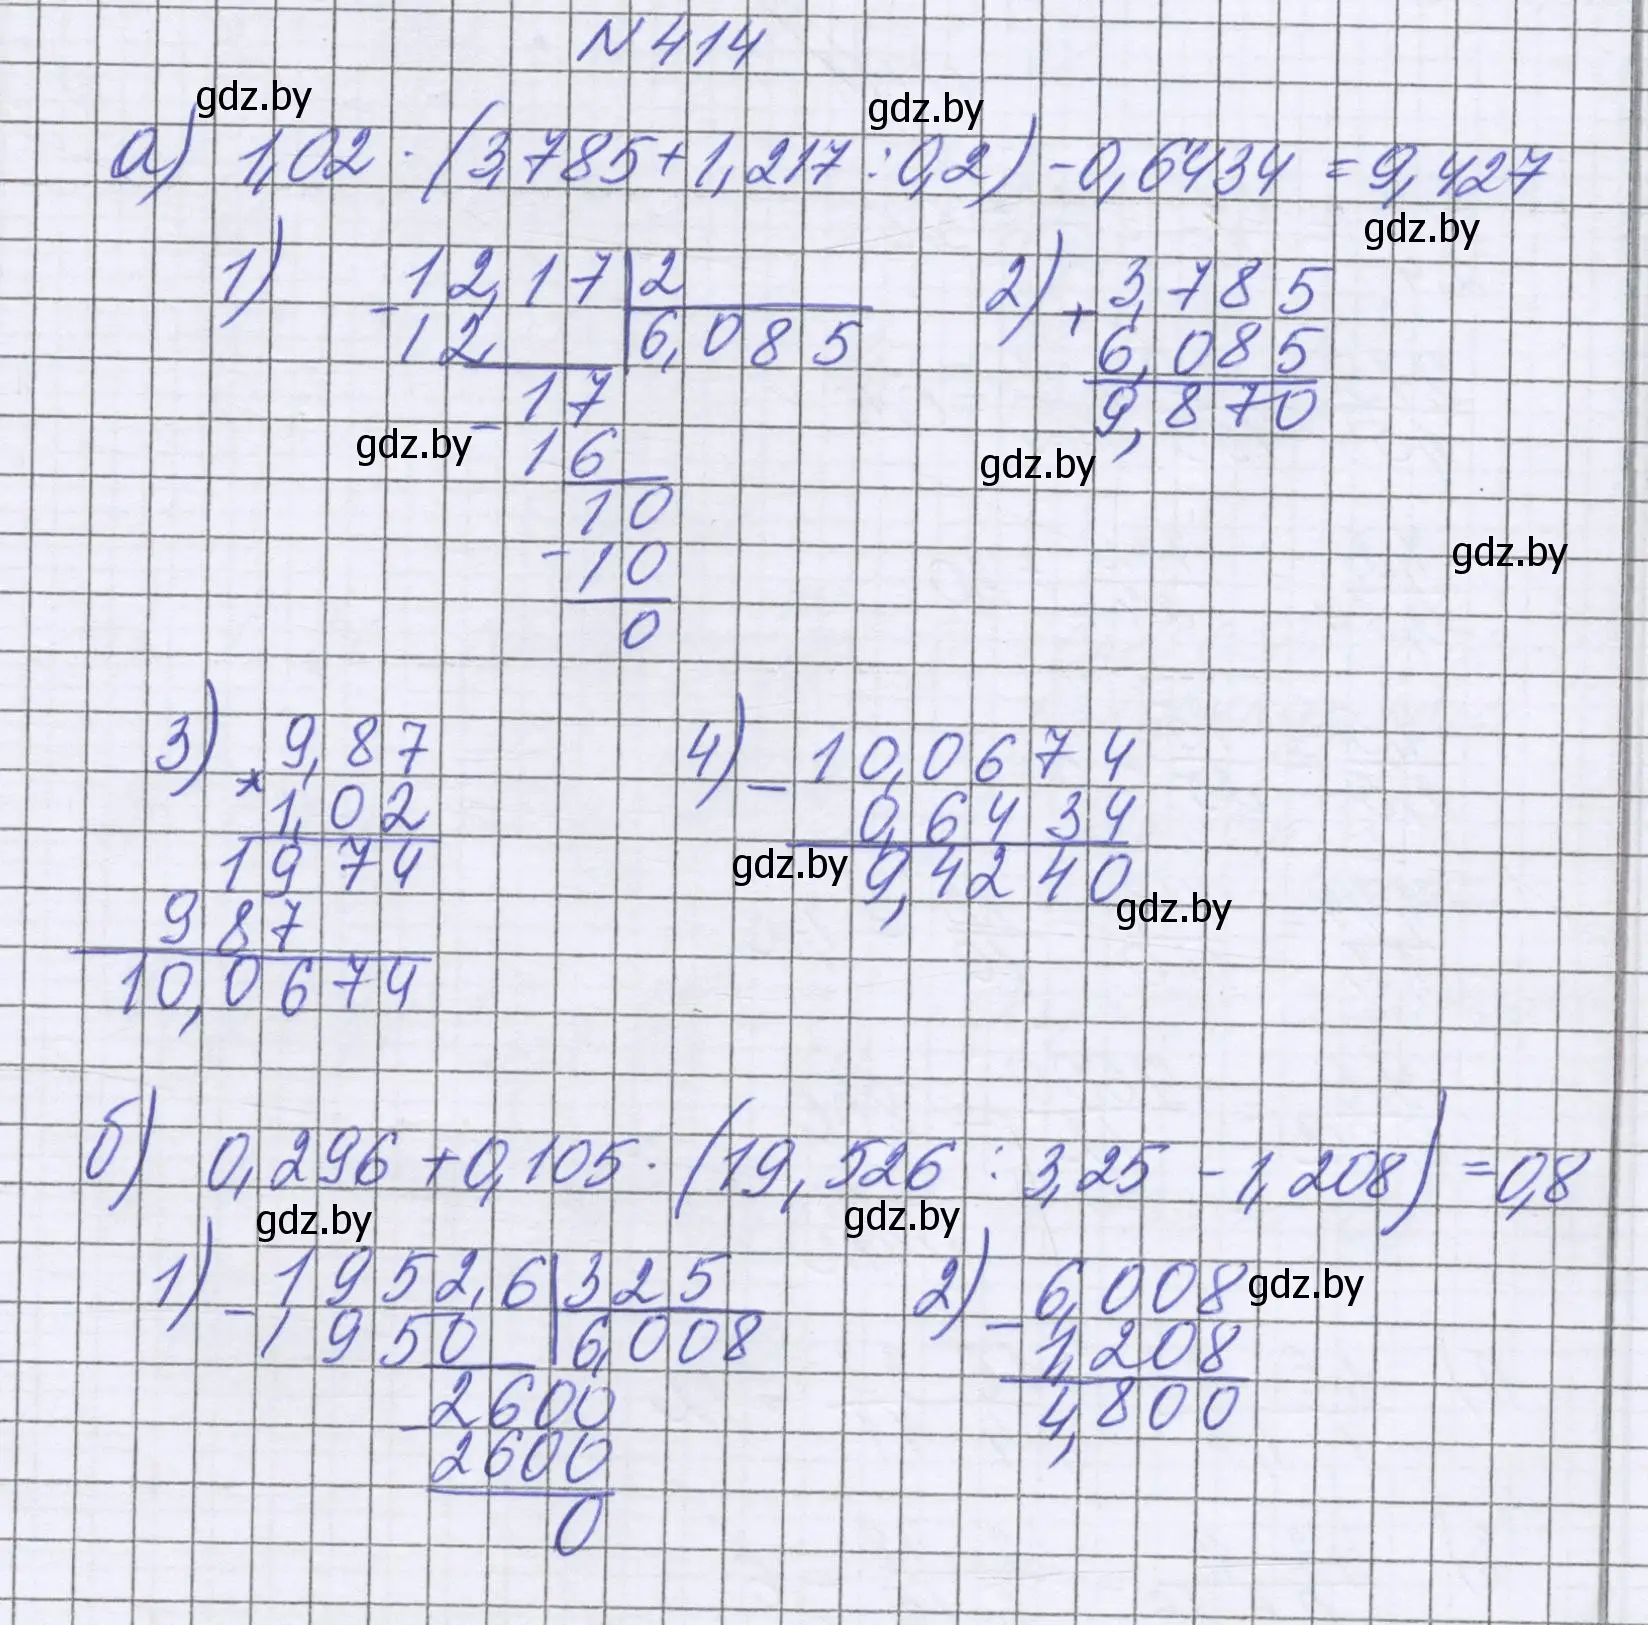 N 414
gdz.by gdz.by
а) 1,02 · (3,785 + 1,217 : 0,2) - 0,6434 = 9,427
gdz.by
1) - 12,17 | 2 2) + 3,785
12, 6,085 6,085
- 17 9,870
gdz.by 16 gdz.by
10
- 10 gdz.by
0
3) * 9,87 4) - 10,0674
1,02 0,6434
1974 gdz.by 9,4240 gdz.by
987
10,0674
б) 0,296 + 0,105 · (19,526 : 3,25 - 1,208) = 0,8
gdz.by gdz.by
1) - 1952,6 | 325 2) - 6,008 gdz.by
1950 6,008 1,208
- 2600 4,800
2600
0